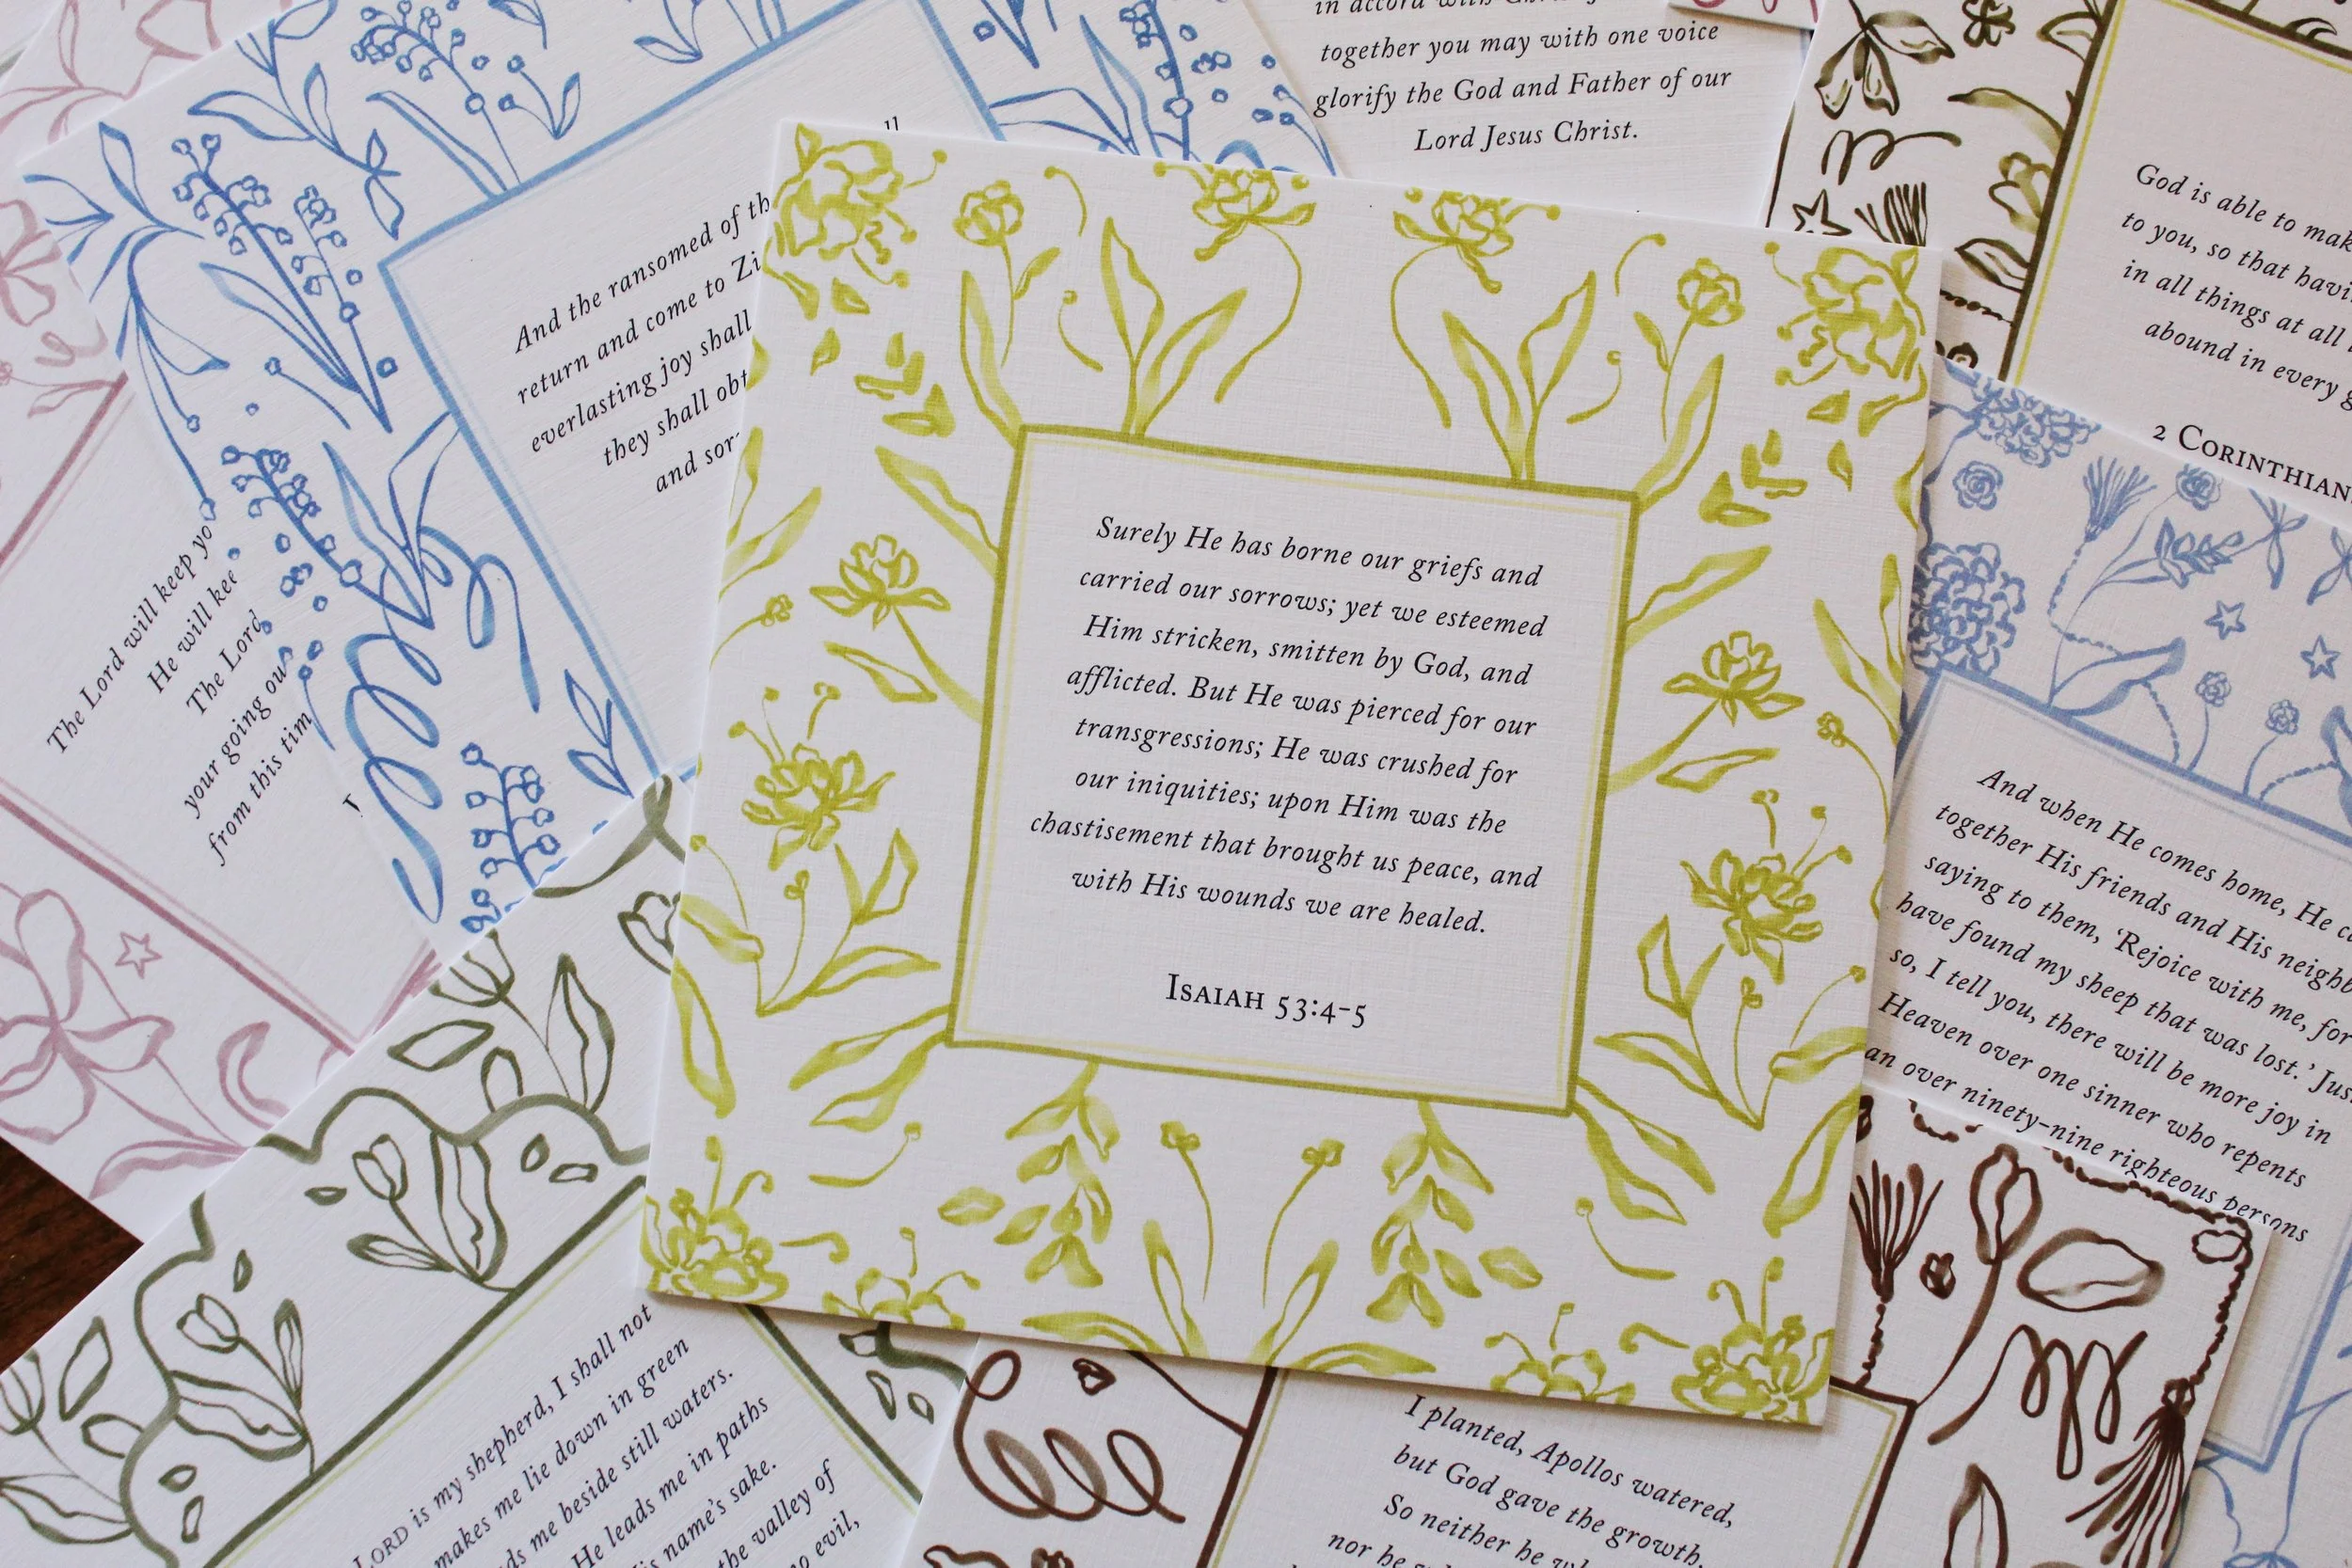 in accord with
together you may with one voice
glorify the God and Father of our
Lord Jesus Christ.
God is able to
to you, so that
in all things at all
abound in every
2 Corinthians
And the ransomed of
return and come to
everlasting joy shall
they shall
and
The Lord will keep
He will
The Lord
your going
from this
Surely He has borne our griefs and
carried our sorrows; yet we esteemed
Him stricken, smitten by God, and
afflicted. But He was pierced for our
transgressions; He was crushed for
our iniquities; upon Him was the
chastisement that brought us peace, and
with His wounds we are healed.
Isaiah 53:4-5
And when He comes home, He
together His friends and His
saying to them, ‘Rejoice with me, for
have found my sheep that was lost.’
so, I tell you, there will be more joy in
Heaven over one sinner who repents
over ninety-nine righteous persons
Lord is my shepherd, I shall not
makes me lie down in green
me beside still waters.
He leads me in paths
name's sake.
the valley of
evil,
I planted, Apollos watered,
but God gave the growth.
So neither he
nor he